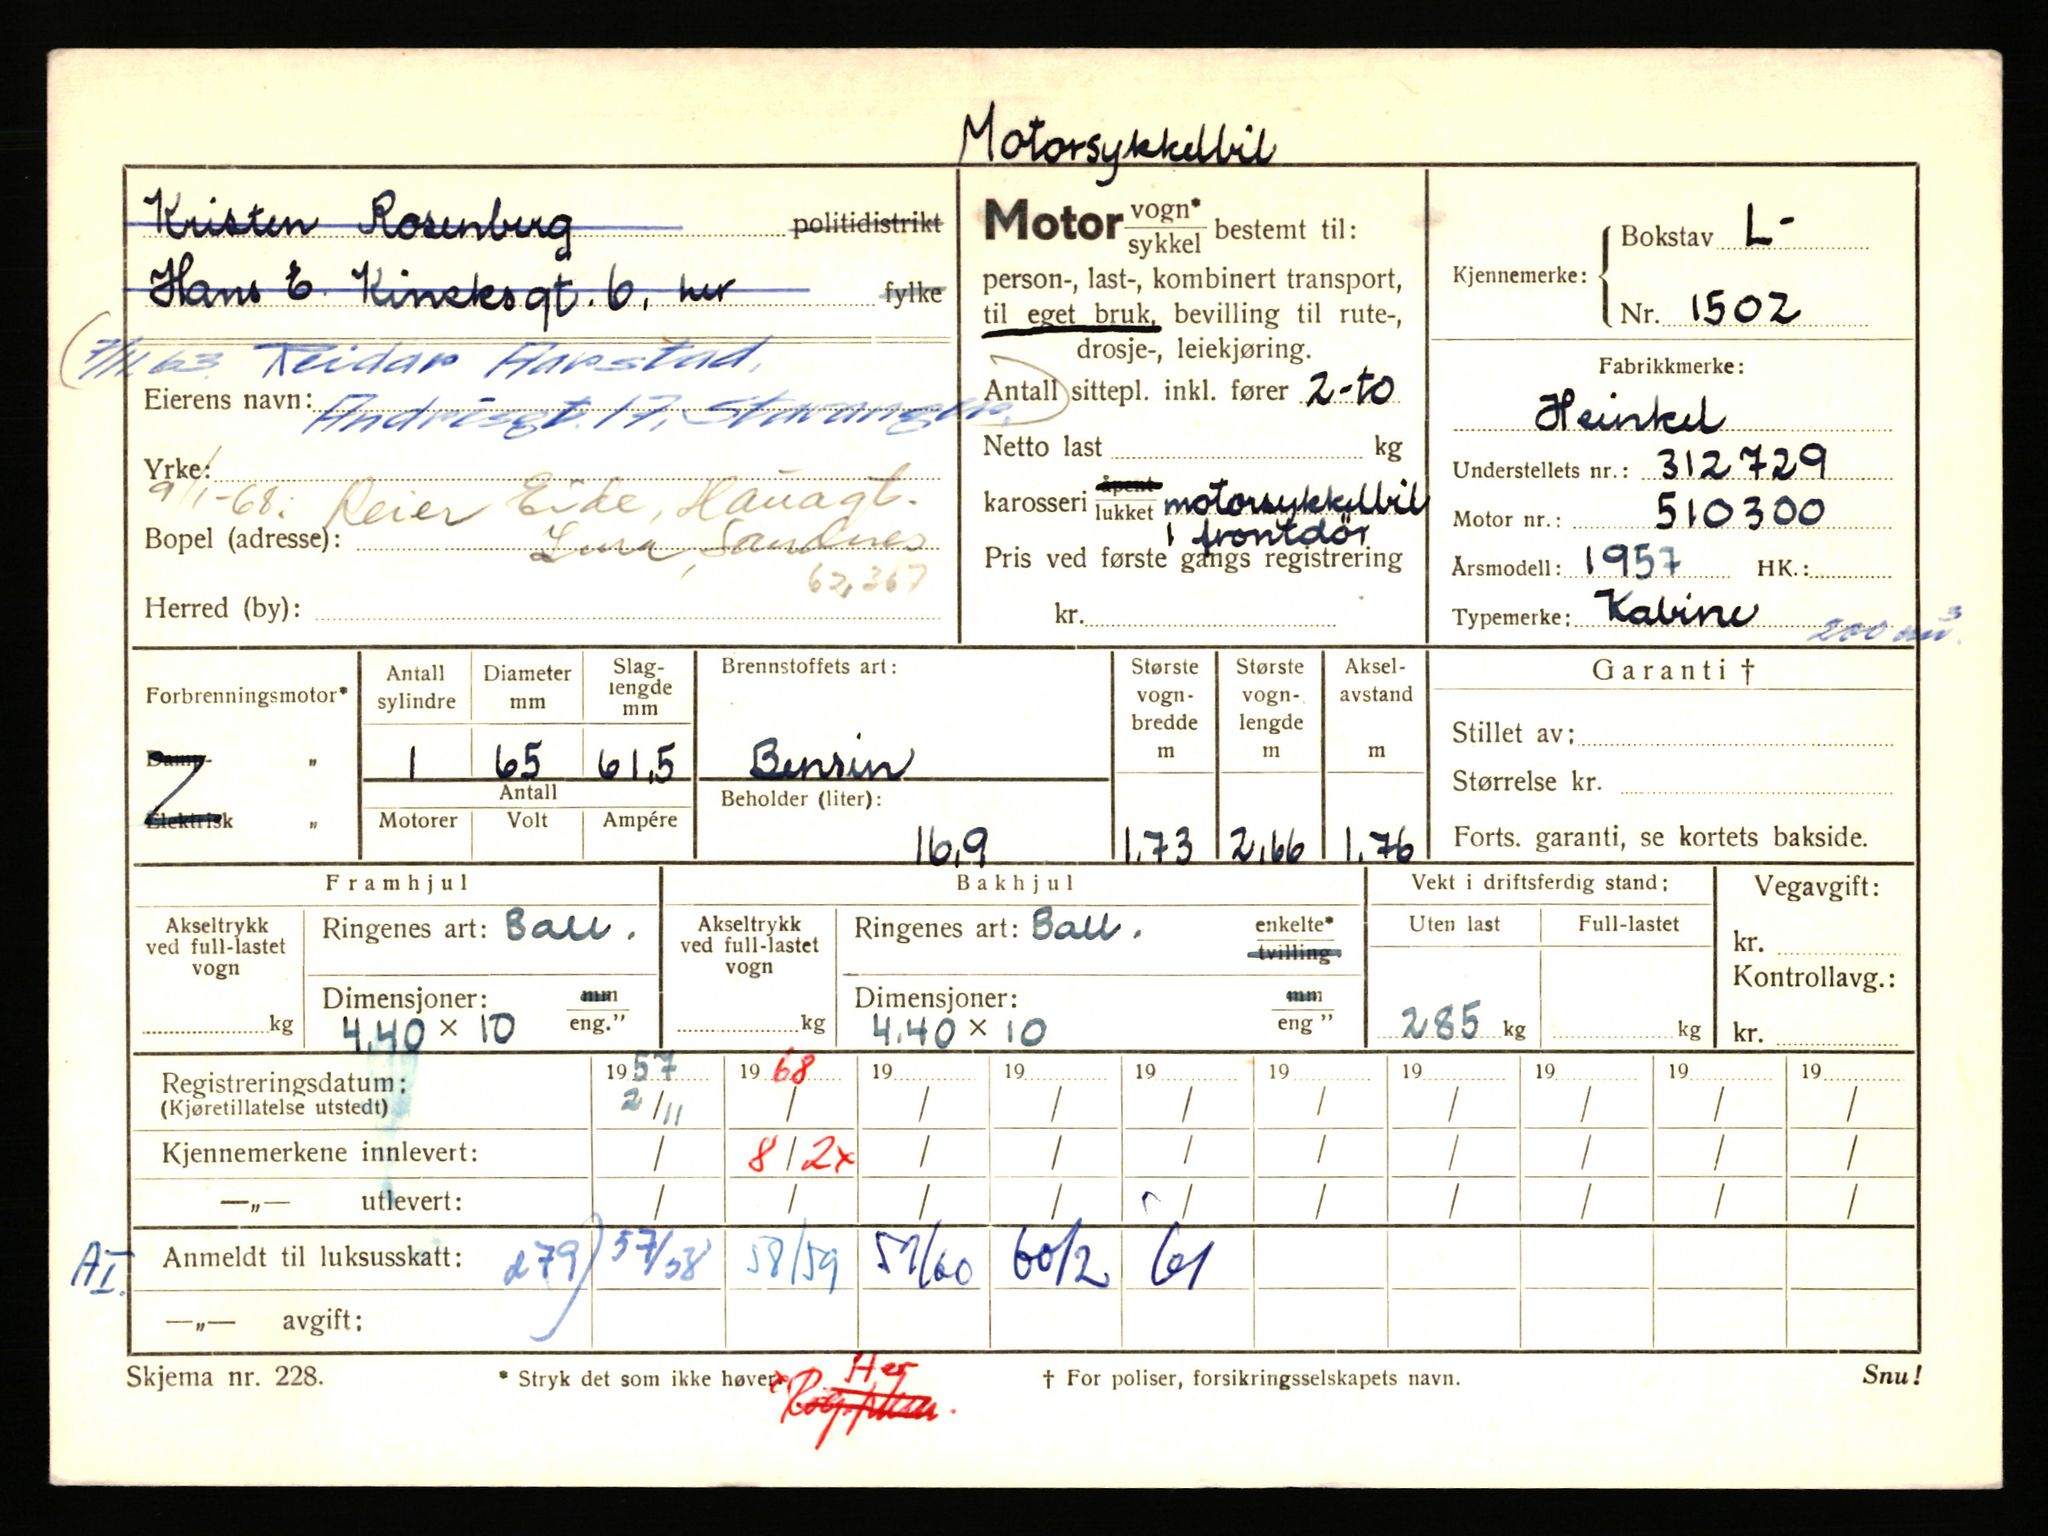 Motorsykkelbil
Kristen Rosenberg politidistrikt
Hans E. Kincksgt. 6, her fylke
7/11.63. Reidar Aarstad,
Eierens navn: Andrésgt. 17, Stavanger.
Yrke:
9/1-68: Reier Eide, Hauagt.
Bopel (adresse): Lura, Sandnes
62,367
Herred (by):
Motor vogn* / sykkel bestemt til:
person-, last-, kombinert transport,
til eget bruk, bevilling til rute-,
drosje-, leiekjøring.
Antall sittepl. inkl. fører 2-to
Netto last kg
karosseri åpent / lukket motorsykkelbil
1 frontdör
Pris ved første gangs registrering
kr.
Kjennemerke: Bokstav L-
Nr. 1502
Fabrikkmerke:
Heinkel
Understellets nr.: 312729
Motor nr.: 510300
Årsmodell: 1957 HK.:
Typemerke: Kabine
200 cm³.
Forbrenningsmotor*
Damp- „
Elektrisk „
Antall sylindre 1
Diameter mm 65
Slag-lengde mm 61,5
Antall
Motorer Volt Ampére
Brennstoffets art:
Bensin
Beholder (liter):
16,9
Største vogn-bredde m 1,73
Største vogn-lengde m 2,66
Aksel-avstand m 1,76
Garanti †
Stillet av:
Størrelse kr.
Forts. garanti, se kortets bakside.
Framhjul
Akseltrykk ved full-lastet vogn kg
Ringenes art: Ball.
Dimensjoner: mm / eng.”
4,40 × 10
Bakhjul
Akseltrykk ved full-lastet vogn kg
Ringenes art: Ball. enkelte* / tvilling
Dimensjoner: mm / eng ”
4,40 × 10
Vekt i driftsferdig stand:
Uten last Full-lastet
285 kg kg
Vegavgift:
kr.
Kontrollavg.:
kr.
Registreringsdatum: 1957 1968 19 19 19 19 19 19 19 19
(Kjøretillatelse utstedt) 2/11 / / / / / / / / /
Kjennemerkene innlevert: / 8/2x / / / / / / / /
—„— utlevert: / / / / / / / / / /
AI. Anmeldt til luksusskatt: 279) 57/58 58/59 59/60 60/2 61
—„— avgift:
Skjema nr. 228. * Stryk det som ikke høver. x Her † For poliser, forsikringsselskapets navn. Snu!